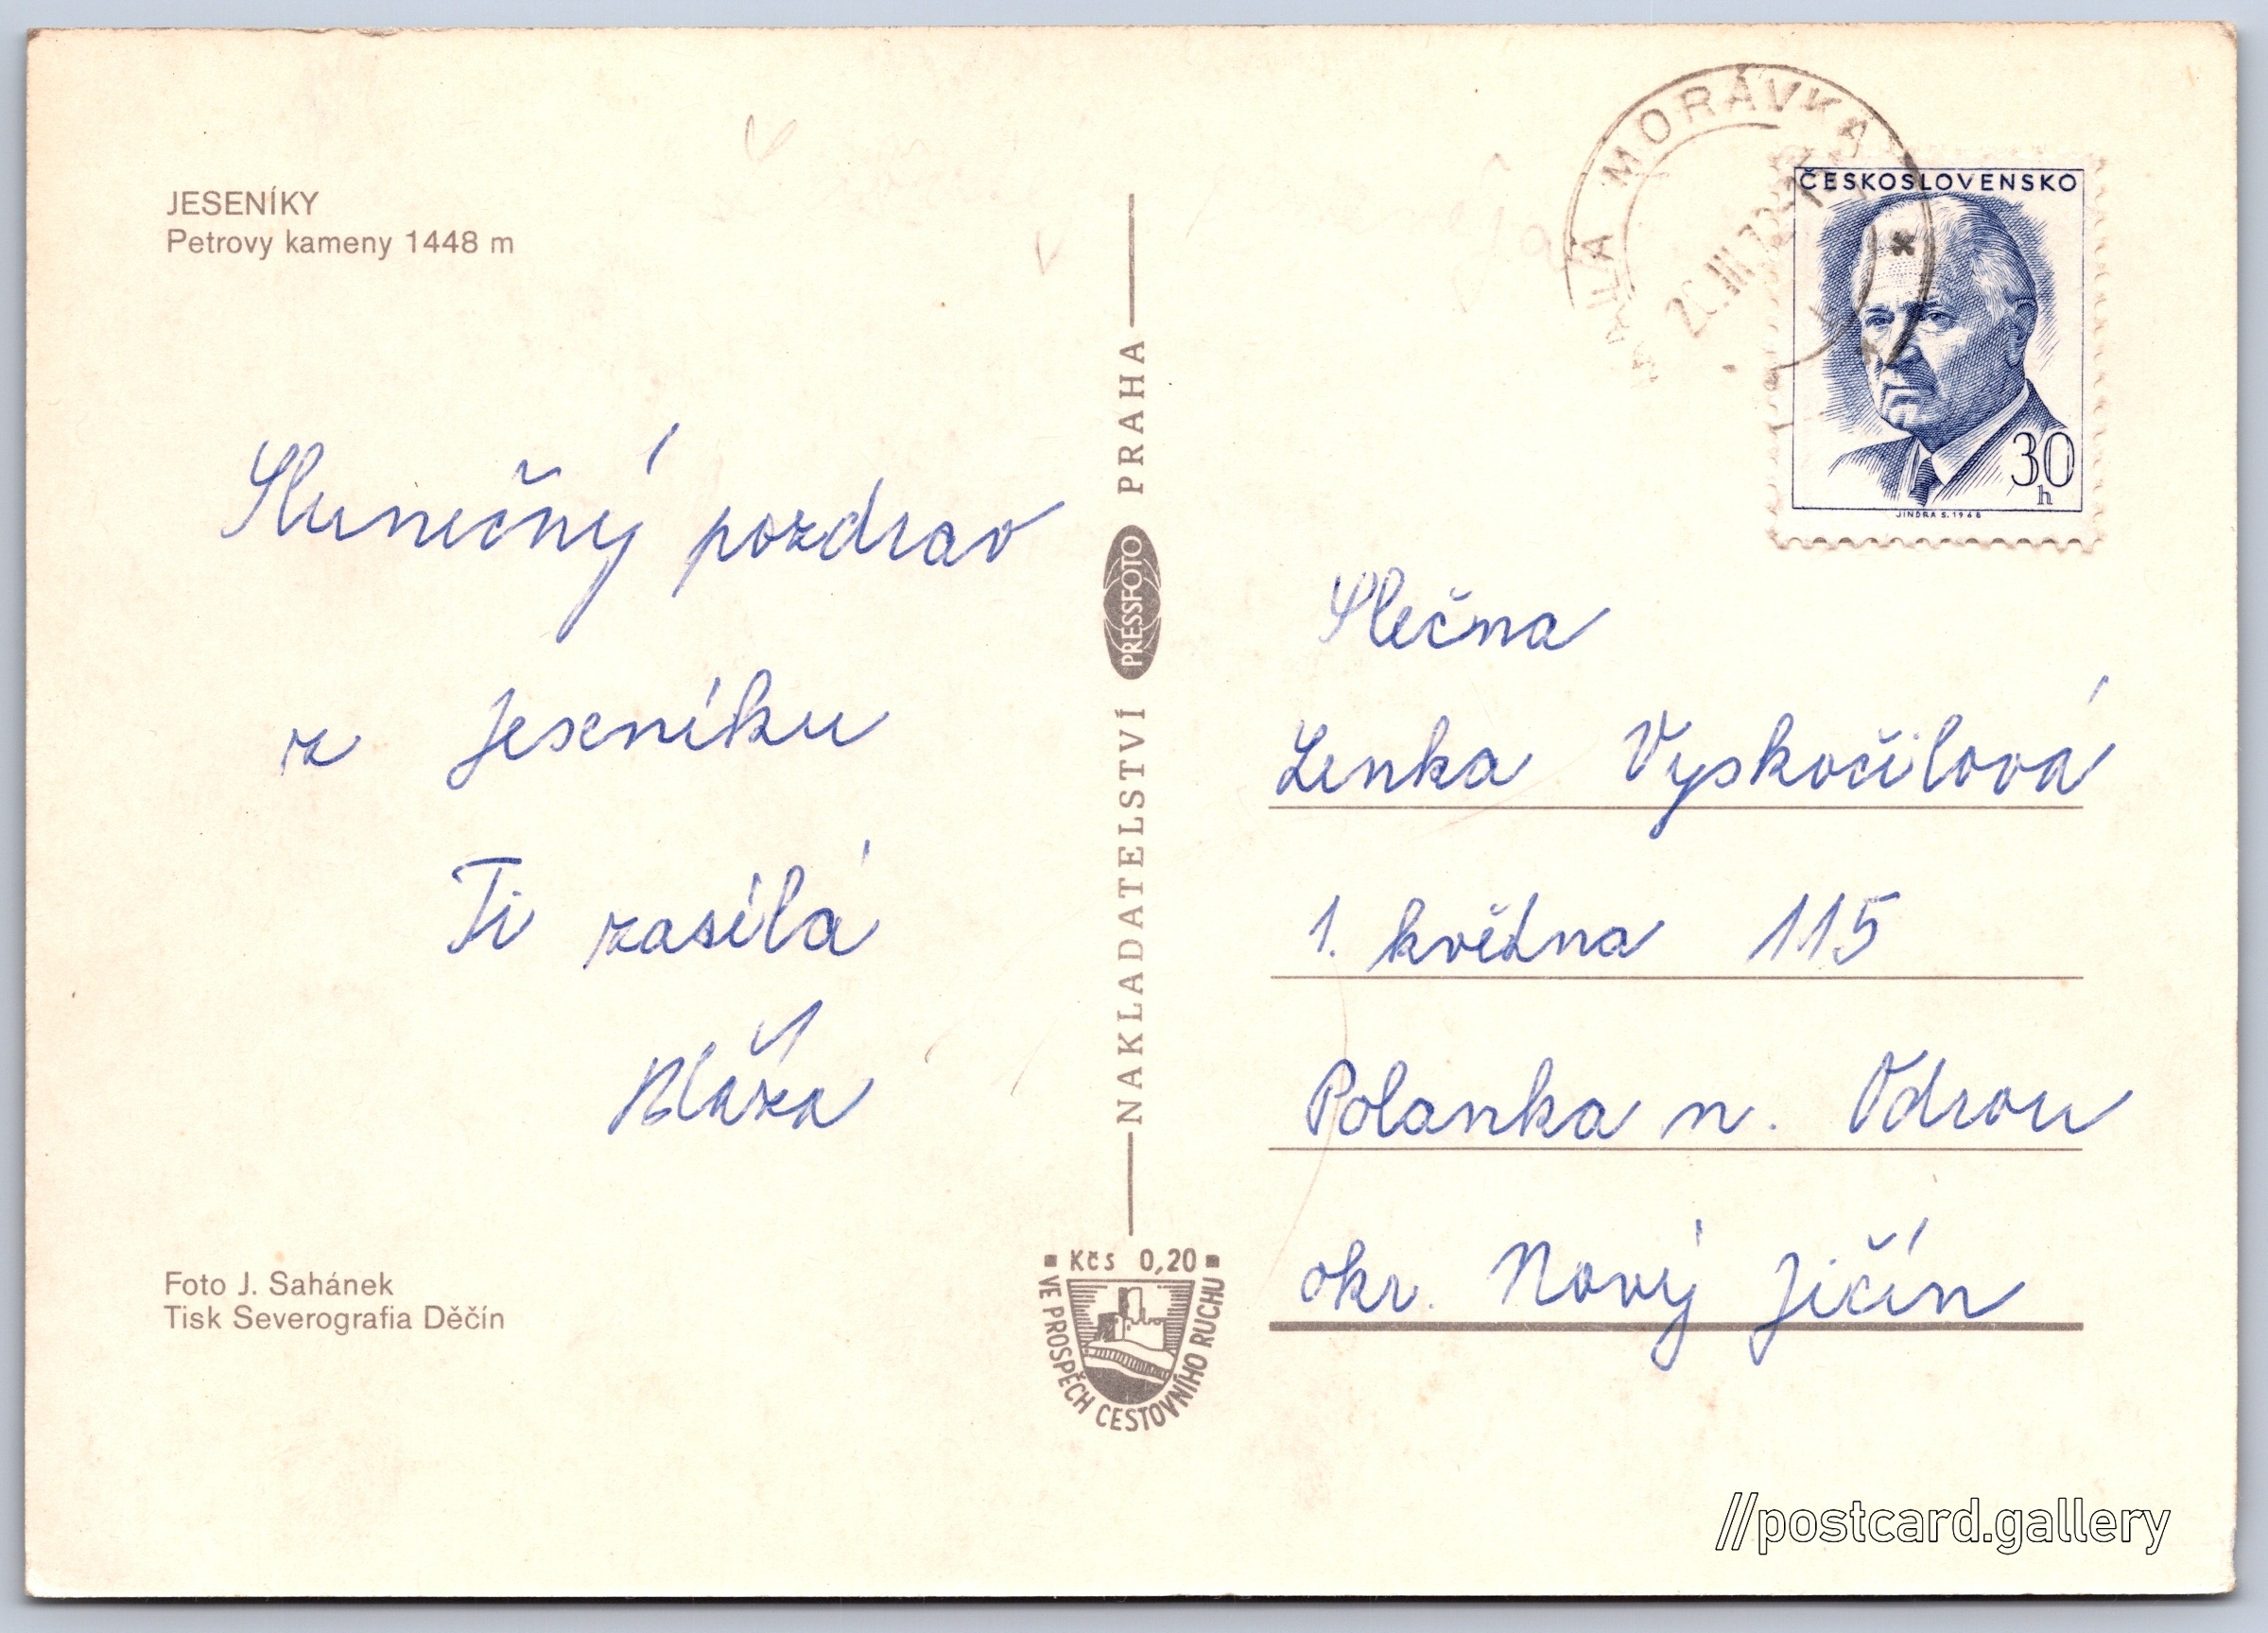 JESENÍKY
Petrovy kameny 1448 m
Slunečný pozdrav
z Jeseníku
Ti zasílá
Blážа
Foto J. Sahánek
Tisk Severografia Děčín
NAKLADATELSTVÍ PRESSFOTO PRAHA
Kčs 0,20
VE PROSPĚCH CESTOVNÍHO RUCHU
MALÁ MORÁVKA
ČESKOSLOVENSKO
30
h
JINDRA S. 1968
Slečna
Lenka Vyskočilová
1. května 115
Polanka n. Odrou
okr. Nový Jičín
//postcard.gallery